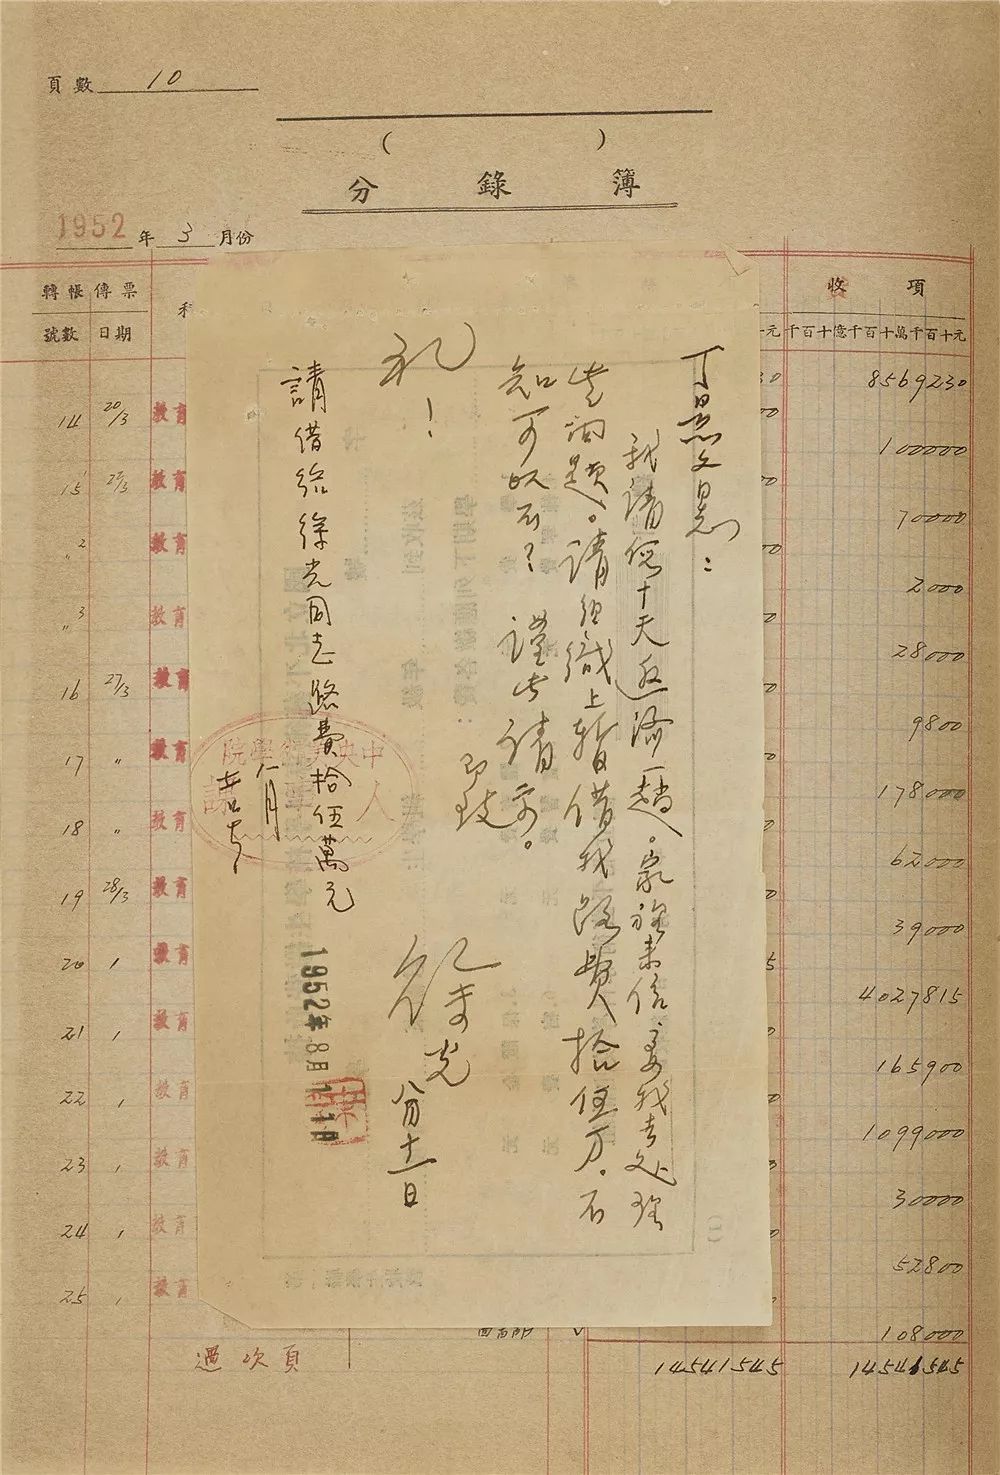 頁數 10
( )
分錄簿
1952 年 3 月份
轉帳傳票
號數 日期
收項
千百十億千百十萬千百十元
丁景文同志：
我請假十天返濟一趟。家裡來信要我去处理
些問題。請組織上暫借我路費拾伍万。不
知可以否？謹告請示。
即致
礼！
徐光
八月十一日
請借給徐光同志路費拾伍萬元
中央美術學院
人事
1952年8月11日
14 20/3 教育
15 27/3 教育
〃2 教育
〃3 教育
16 27/3 教育
17 〃 教育
18 〃 教育
19 28/3 教育
20 教育
21 教育
22 教育
23 教育
24 教育
25 教育
8569230
100000
70000
2000
28000
9800
178000
62000
39000
4027815
165900
1099000
30000
52800
108000
過次頁
14541545
14541545